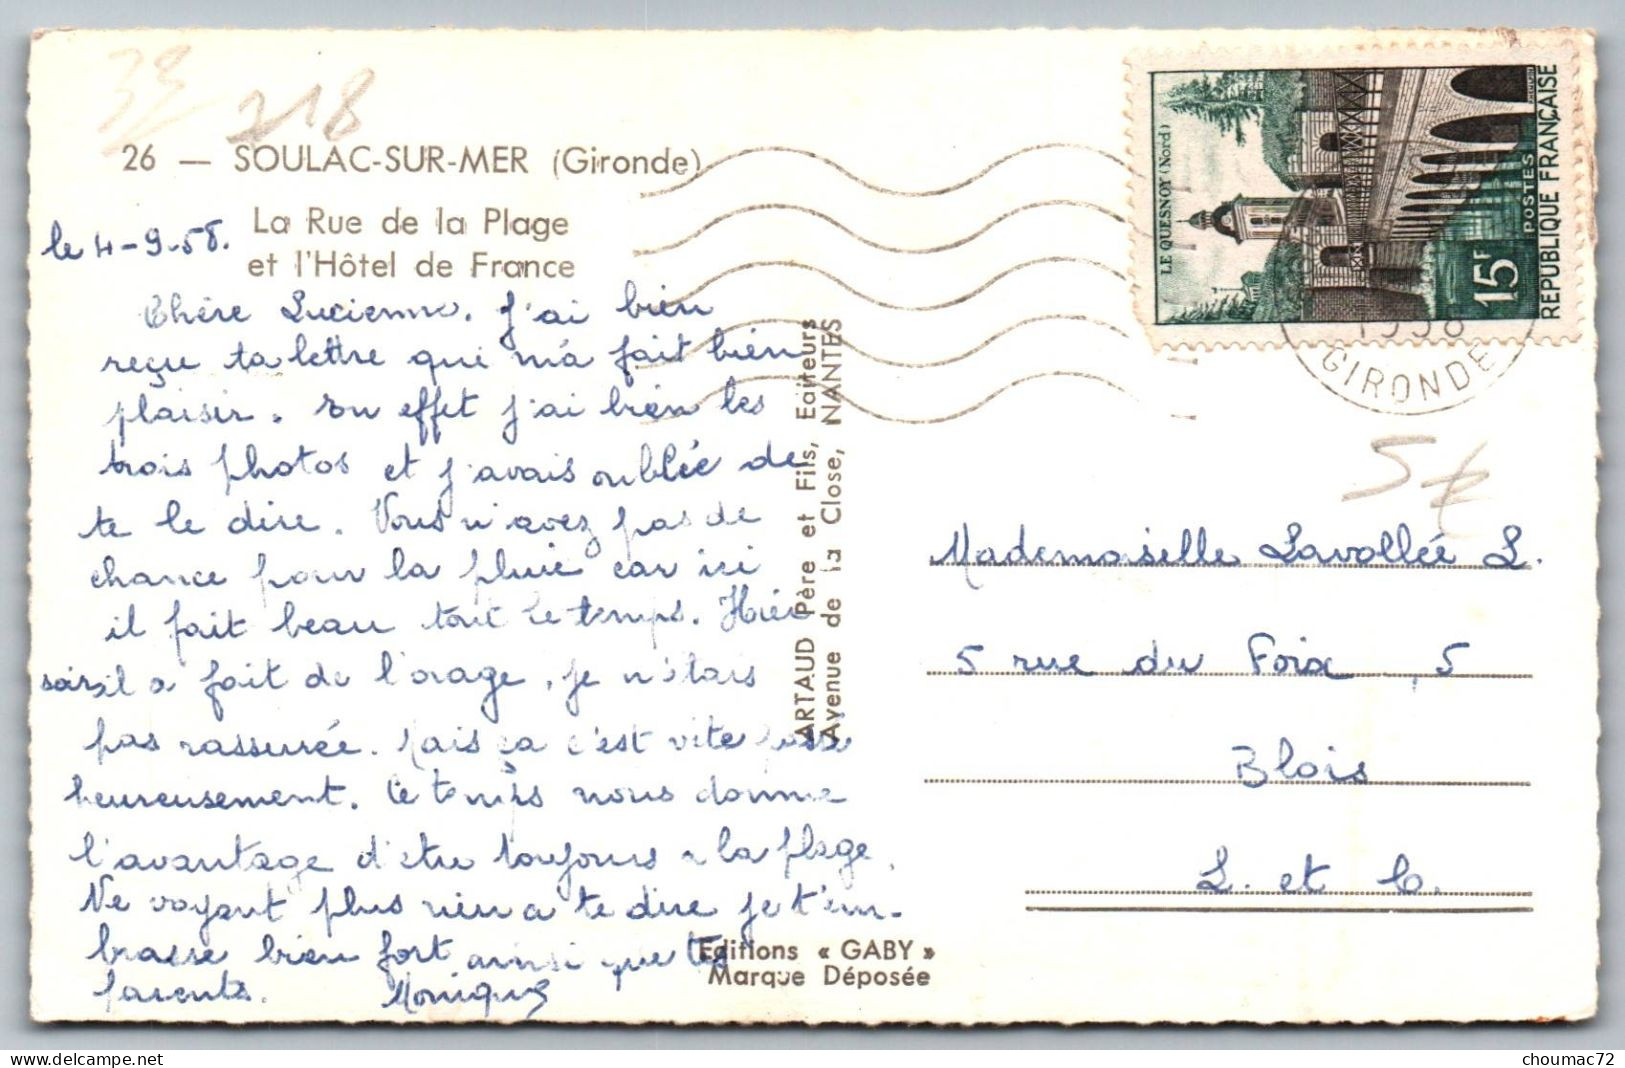 33 218
26 — SOULAC-SUR-MER (Gironde)
La Rue de la Plage
et l'Hôtel de France
le 4-9-58.
Chère Lucienne. J'ai bien
reçu ta lettre qui m'a fait bien
plaisir. En effet j'ai bien les
trois photos et j'avais oubliée de
te le dire. Vous n'avez pas de
chance pour la pluie car ici
il fait beau tout le temps. Hier
soir il a fait de l'orage, je n'étais
pas rassurée. Mais ça c'est vite passé
heureusement. Ce temps nous donne
l'avantage d'être toujours a la plage.
Ne voyant plus rien a te dire je t'em-
brasse bien fort ainsi que tes
parents. Monique
ARTAUD Père et Fils, Editeurs
Avenue de la Close, NANTES
Editions « GABY »
Marque Déposée
LE QUESNOY (Nord)
15F
POSTES
REPUBLIQUE FRANÇAISE
1958
GIRONDE
5€
Mademoiselle Lavollée L.
5 rue du Foix, 5
Blois
L. et C.
choumac72